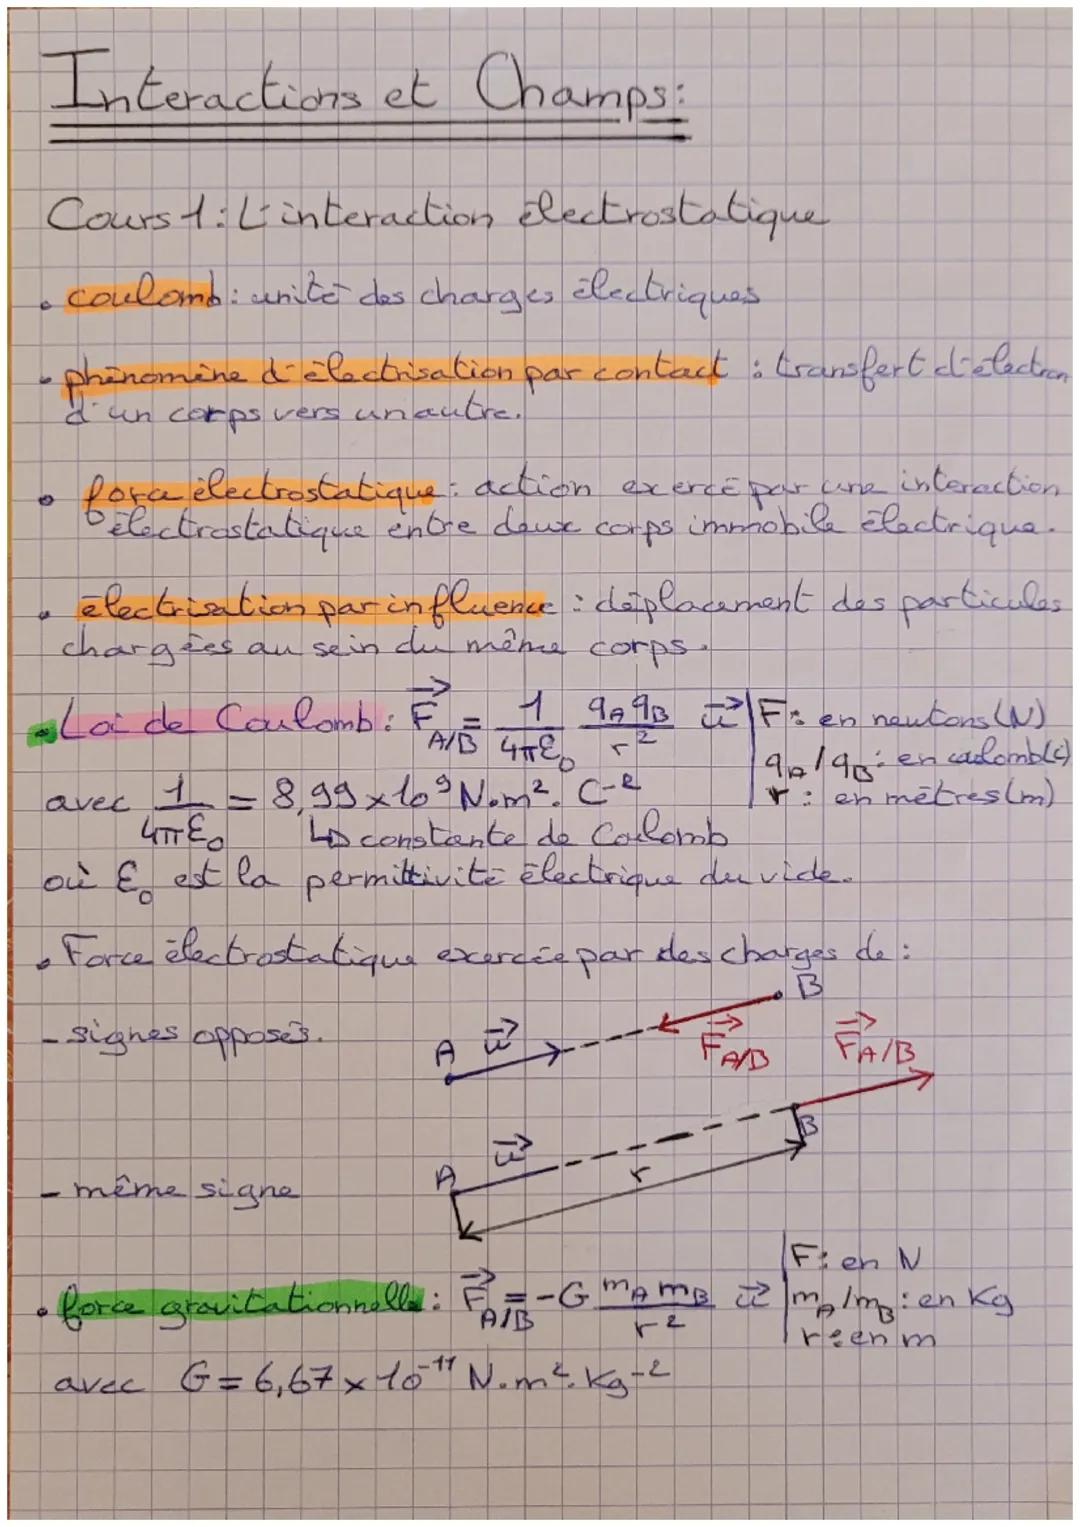 Interactions et Champs:
Cours 1: L'interaction électrostatique
• coulomb: unité des charges électriques
• phénomène d'électrisation par contact : transfert d'électron
d'un corps vers un autre.
• force électrostatique: action exercé par une interaction
électrostatique entre deux corps immobile électrique.
• électrisation par influence : déplacement des particules
chargées au sein du même corps.
• Loi de Coulomb: F⃗ A/B = 1/4πε₀ qA qB/r² u⃗ | F: en newtons (N)
qA/qB: en coulomb(c)
r: en mètres (m)
avec 1/4πε₀ = 8,99 x 10⁹ N.m².C⁻²
↳ constante de Coulomb
où ε₀ est la permittivité électrique du vide.
• Force électrostatique exercée par des charges de :
- signes opposés.
A u⃗ F⃗ A/B B
- même signe
A u⃗ r B F⃗ A/B
• force gravitationnelle: F⃗ A/B = -G mA mB/r² u⃗ | F: en N
mA/mB: en Kg
r: en m
avec G = 6,67 x 10⁻¹¹ N.m².Kg⁻²